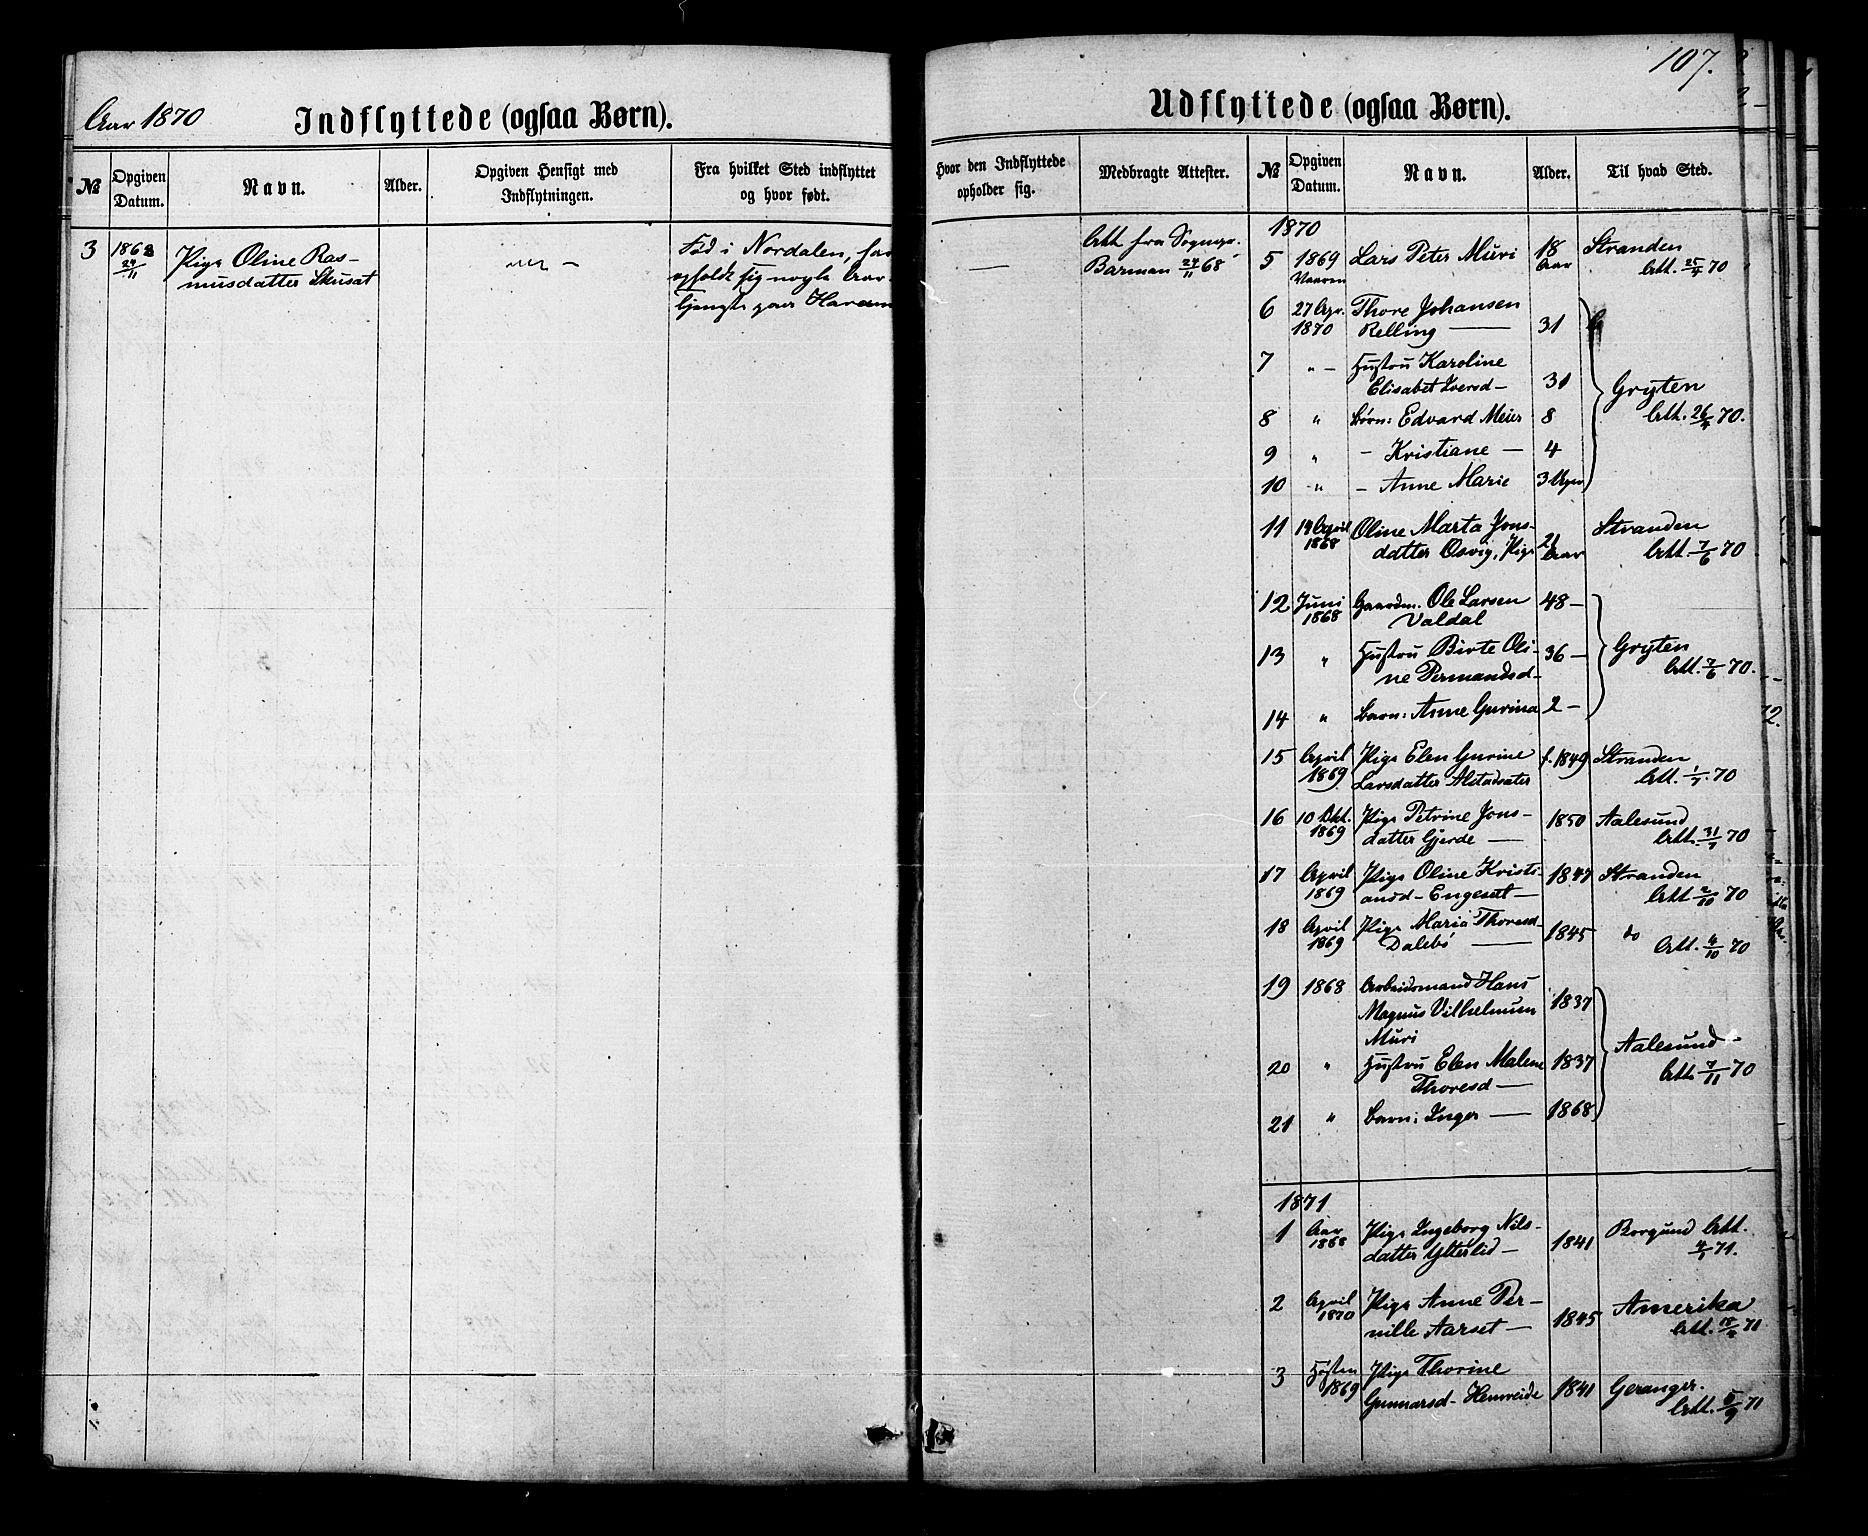 107.
Aar 1870
Indflyttede (ogsaa Børn).
Udflyttede (ogsaa Børn).
№ Opgiven Datum. Navn. Alder. Opgiven Hensigt med Indflytningen. Fra hvilket Sted indflyttet og hvor født. Hvor den Indflyttede opholder sig. Medbragte Attester. № Opgiven Datum. Navn. Alder. Til hvad Sted.
3 1868 24/11 Pige Oline Ras-
musdatter Skusat
Fød i Nordalen, har
opholdt sig nogle Aar
Tjeneste paa Haram
—
Att. fra Sognepr.
Barman 24/11 68
1870
5 1869 Vaaren Lars Peter Muri 18 Aar Stranden
Att. 25/4 70
6 27 Apr. 1870 Thore Johansen
Relling — 31
7 " — Hustru Karoline
Elisabet Iversd— 31 Gryten
Att. 26/4 70.
8 " Børn: Edvard Meier 8
9 " — Kristiane — 4
10 " — Anne Marie 3 Uger
11 14 April 1868 Oline Marta Jons-
datter Osvig, Pige 21 Aar Stranden
Att. 7/6 70
12 Juni 1868 Gaardm. Ole Larsen
Valdal 48 —
13 " Hustru Birte Oli-
ne Permandsd— 36 — Gryten
Att. 7/6 70.
14 " Barn: Anne Gurina 2 —
15 April 1869 Pige Elen Gurine
Larsdatter Alstadsæter f. 1849 Stranden
Att. 1/7 70
16 10 Okt. 1869 Pige Petrine Jons-
datter Gjerde — 1850 Aalesund
Att. 31/7 70
17 April 1869 Pige Oline Kristi-
ansd— Engeset — 1847 Stranden
Att. 2/10 70
18 April 1869 Pige Maria Thoresd
Dalebø — 1845 do
Att. 4/10 70
19 1868 Arbeidsmand Hans
Magnus Vilhelmum
Muri 1837
20 " Hustru Elen Malene
Thoresd — 1837 Aalesund
Att. 7/11 70
21 " Barn: Inger — 1868
1871
1 Aar 1868 Pige Ingeborg Nils-
datter Ytterlid — 1841 Borgund Att.
4/1 71.
2 April 1870 Pige Anne Per-
nille Aarset — 1845 Amerika
Att. 71
3 Høsten 1869 Pige Thorine
Gunnarsd— 1841 Geranger.
Att. 5/9 71